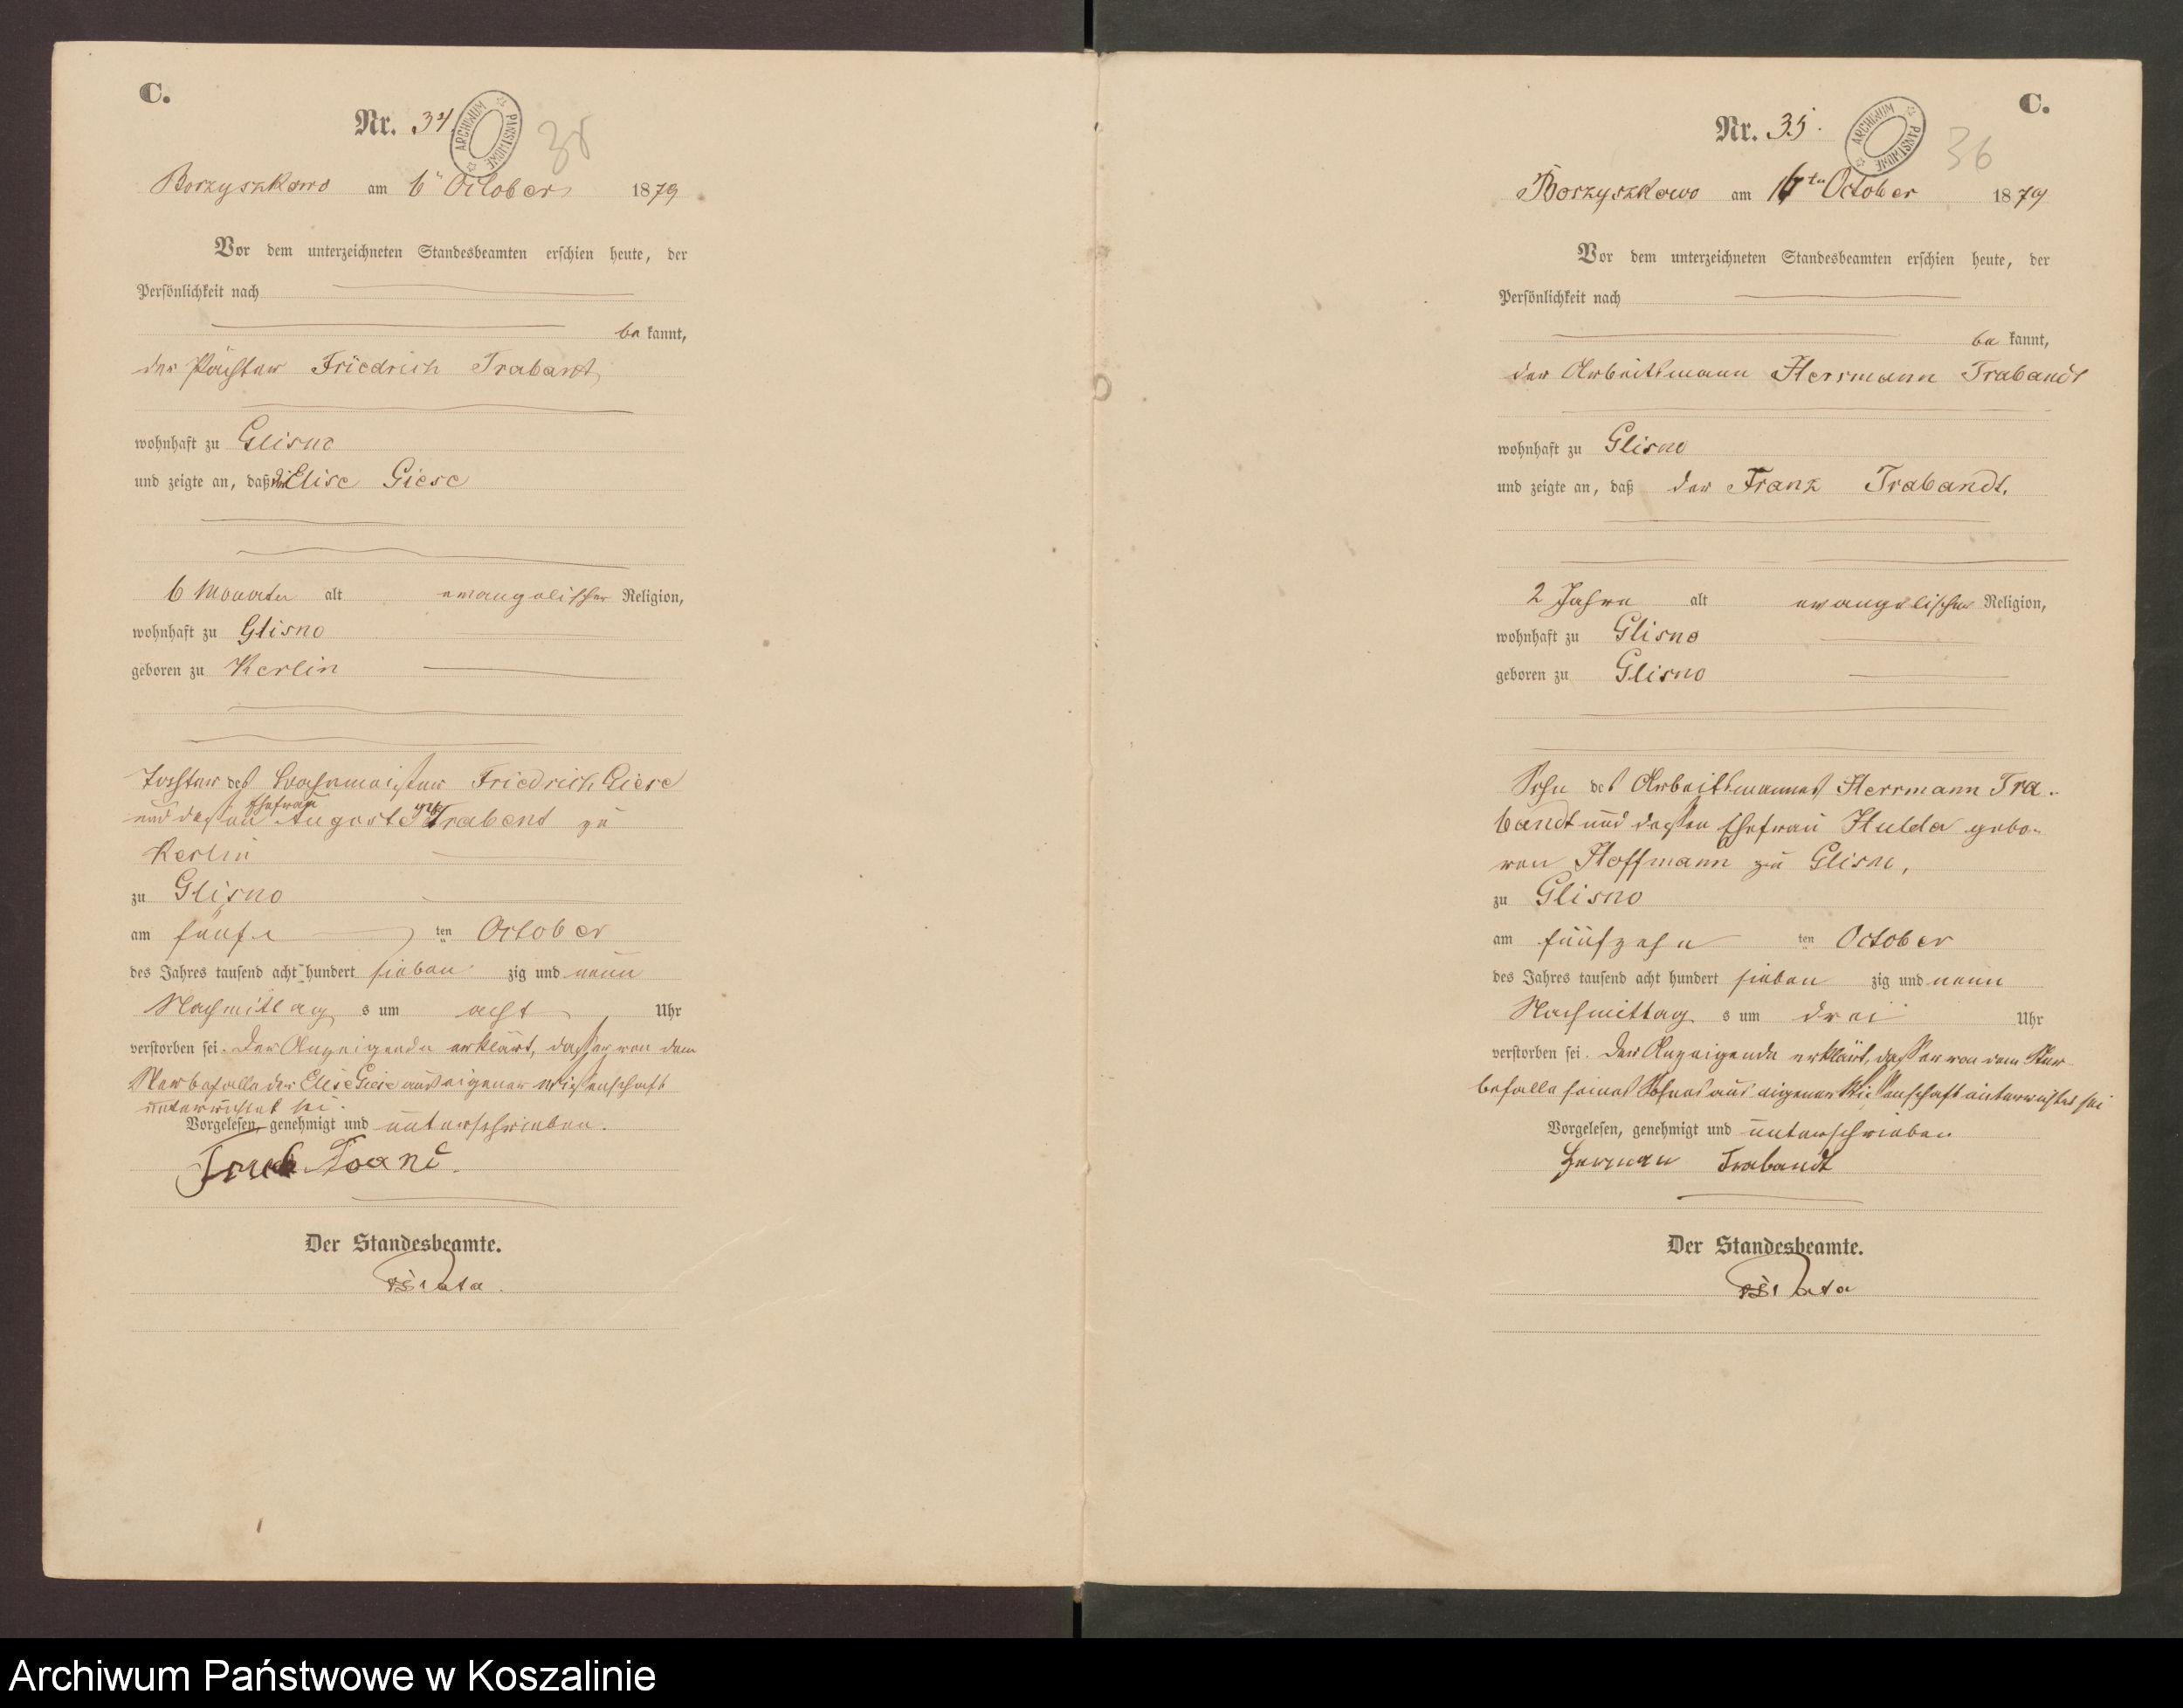 C.
Nr. 34.
ARCHIWUM PAŃSTWOWE
35
Borzyszkowo am 6 October 1879
Vor dem unterzeichneten Standesbeamten erschien heute, der
Persönlichkeit nach
be kannt,
der Friedrich Trabant,
wohnhaft zu Glisno
und zeigte an, daß die Elise Giese
6 Monate alt evangelischer Religion,
wohnhaft zu Glisno
geboren zu Kerlin
Tochter des Friedrich Giese
und dessen Ehefrau Auguste geb Trabant zu
Kerlin
zu Glisno
am fünf ten October
des Jahres tausend acht hundert sieben zig und neun
Nachmittag s um acht Uhr
verstorben sei. Der Anzeigende erklärt, dass er von dem
Sterbefalle der Elise Giese aus eigener Wissenschaft
unterrichtet sei.
Vorgelesen, genehmigt und unterschrieben.
Der Standesbeamte.
C.
Nr. 35.
ARCHIWUM PAŃSTWOWE
36
Borzyszkowo am 16ten October 1879
Vor dem unterzeichneten Standesbeamten erschien heute, der
Persönlichkeit nach
be kannt,
der Arbeitsmann Herrmann Trabandt
wohnhaft zu Glisno
und zeigte an, daß der Franz Trabandt.
2 Jahre alt evangelischer Religion,
wohnhaft zu Glisno
geboren zu Glisno
Sohn des Arbeitsmannes Herrmann Tra-
bandt und dessen Ehefrau Hulda gebo-
ren Hoffmann zu Glisno,
zu Glisno
am fünfzehn ten October
des Jahres tausend acht hundert sieben zig und neun
Nachmittag s um drei Uhr
verstorben sei. Der Anzeigende erklärt, dass er von dem Ster-
befalle seines Sohnes aus eigener Wissenschaft unterrichtet sei
Vorgelesen, genehmigt und unterschrieben
Herman Trabandt
Der Standesbeamte.
Archiwum Państwowe w Koszalinie